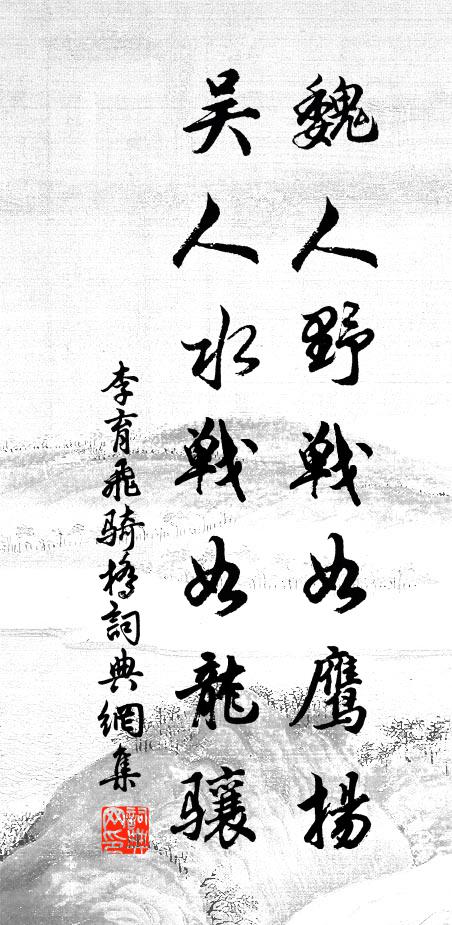 魏人野戰如鷹揚
吴人水戰如龍驤
李育飛騎橋詞典網集